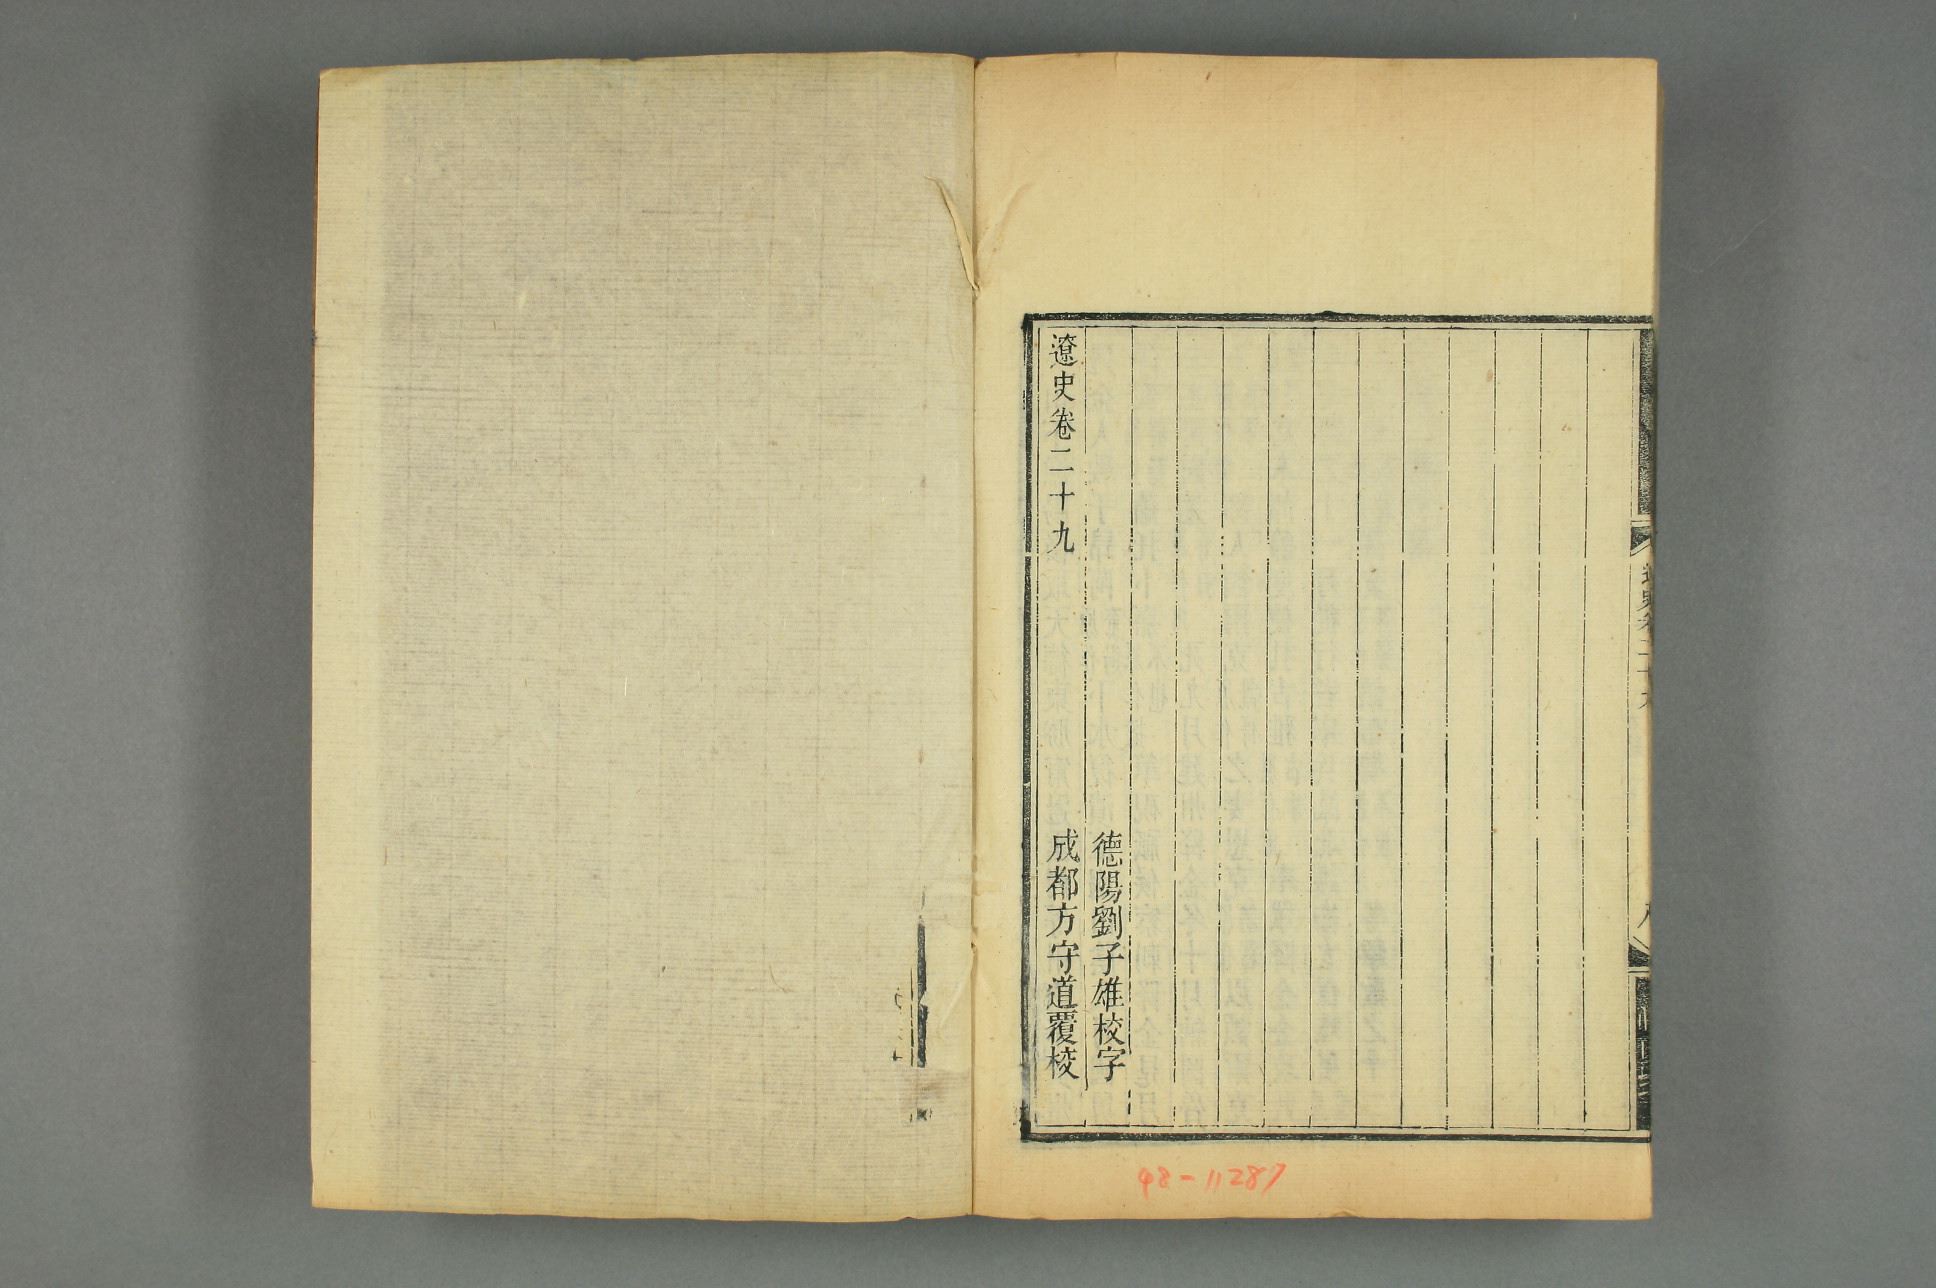 德陽劉子雄校字
遼史卷二十九
成都方守道覆校
48-11287